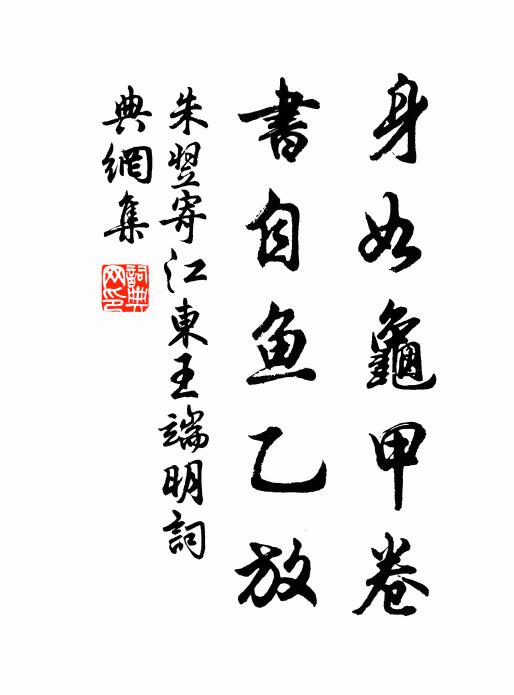 身如龜甲卷
書自魚乙放
朱翌寄江東王端明詞
典網集
詞典
网印